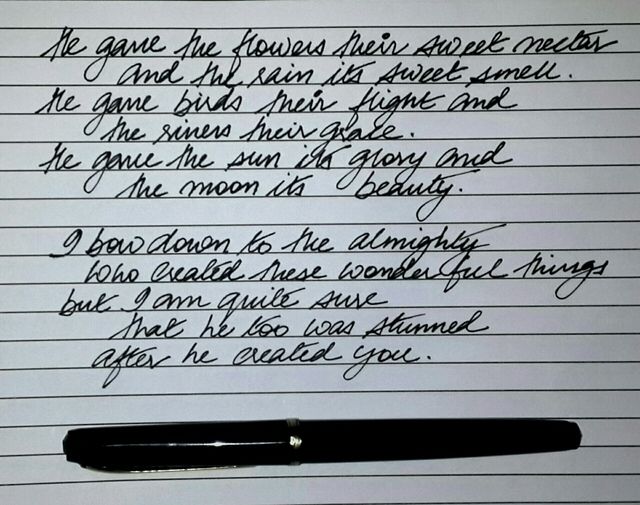 He gave the flowers their sweet nectar
and the rain its sweet smell.
He gave birds their flight and
the rivers their grace.
He gave the sun its glory and
the moon its beauty.
I bow down to the almighty
who created these wonderful things
but I am quite sure
that he too was stunned
after he created you.